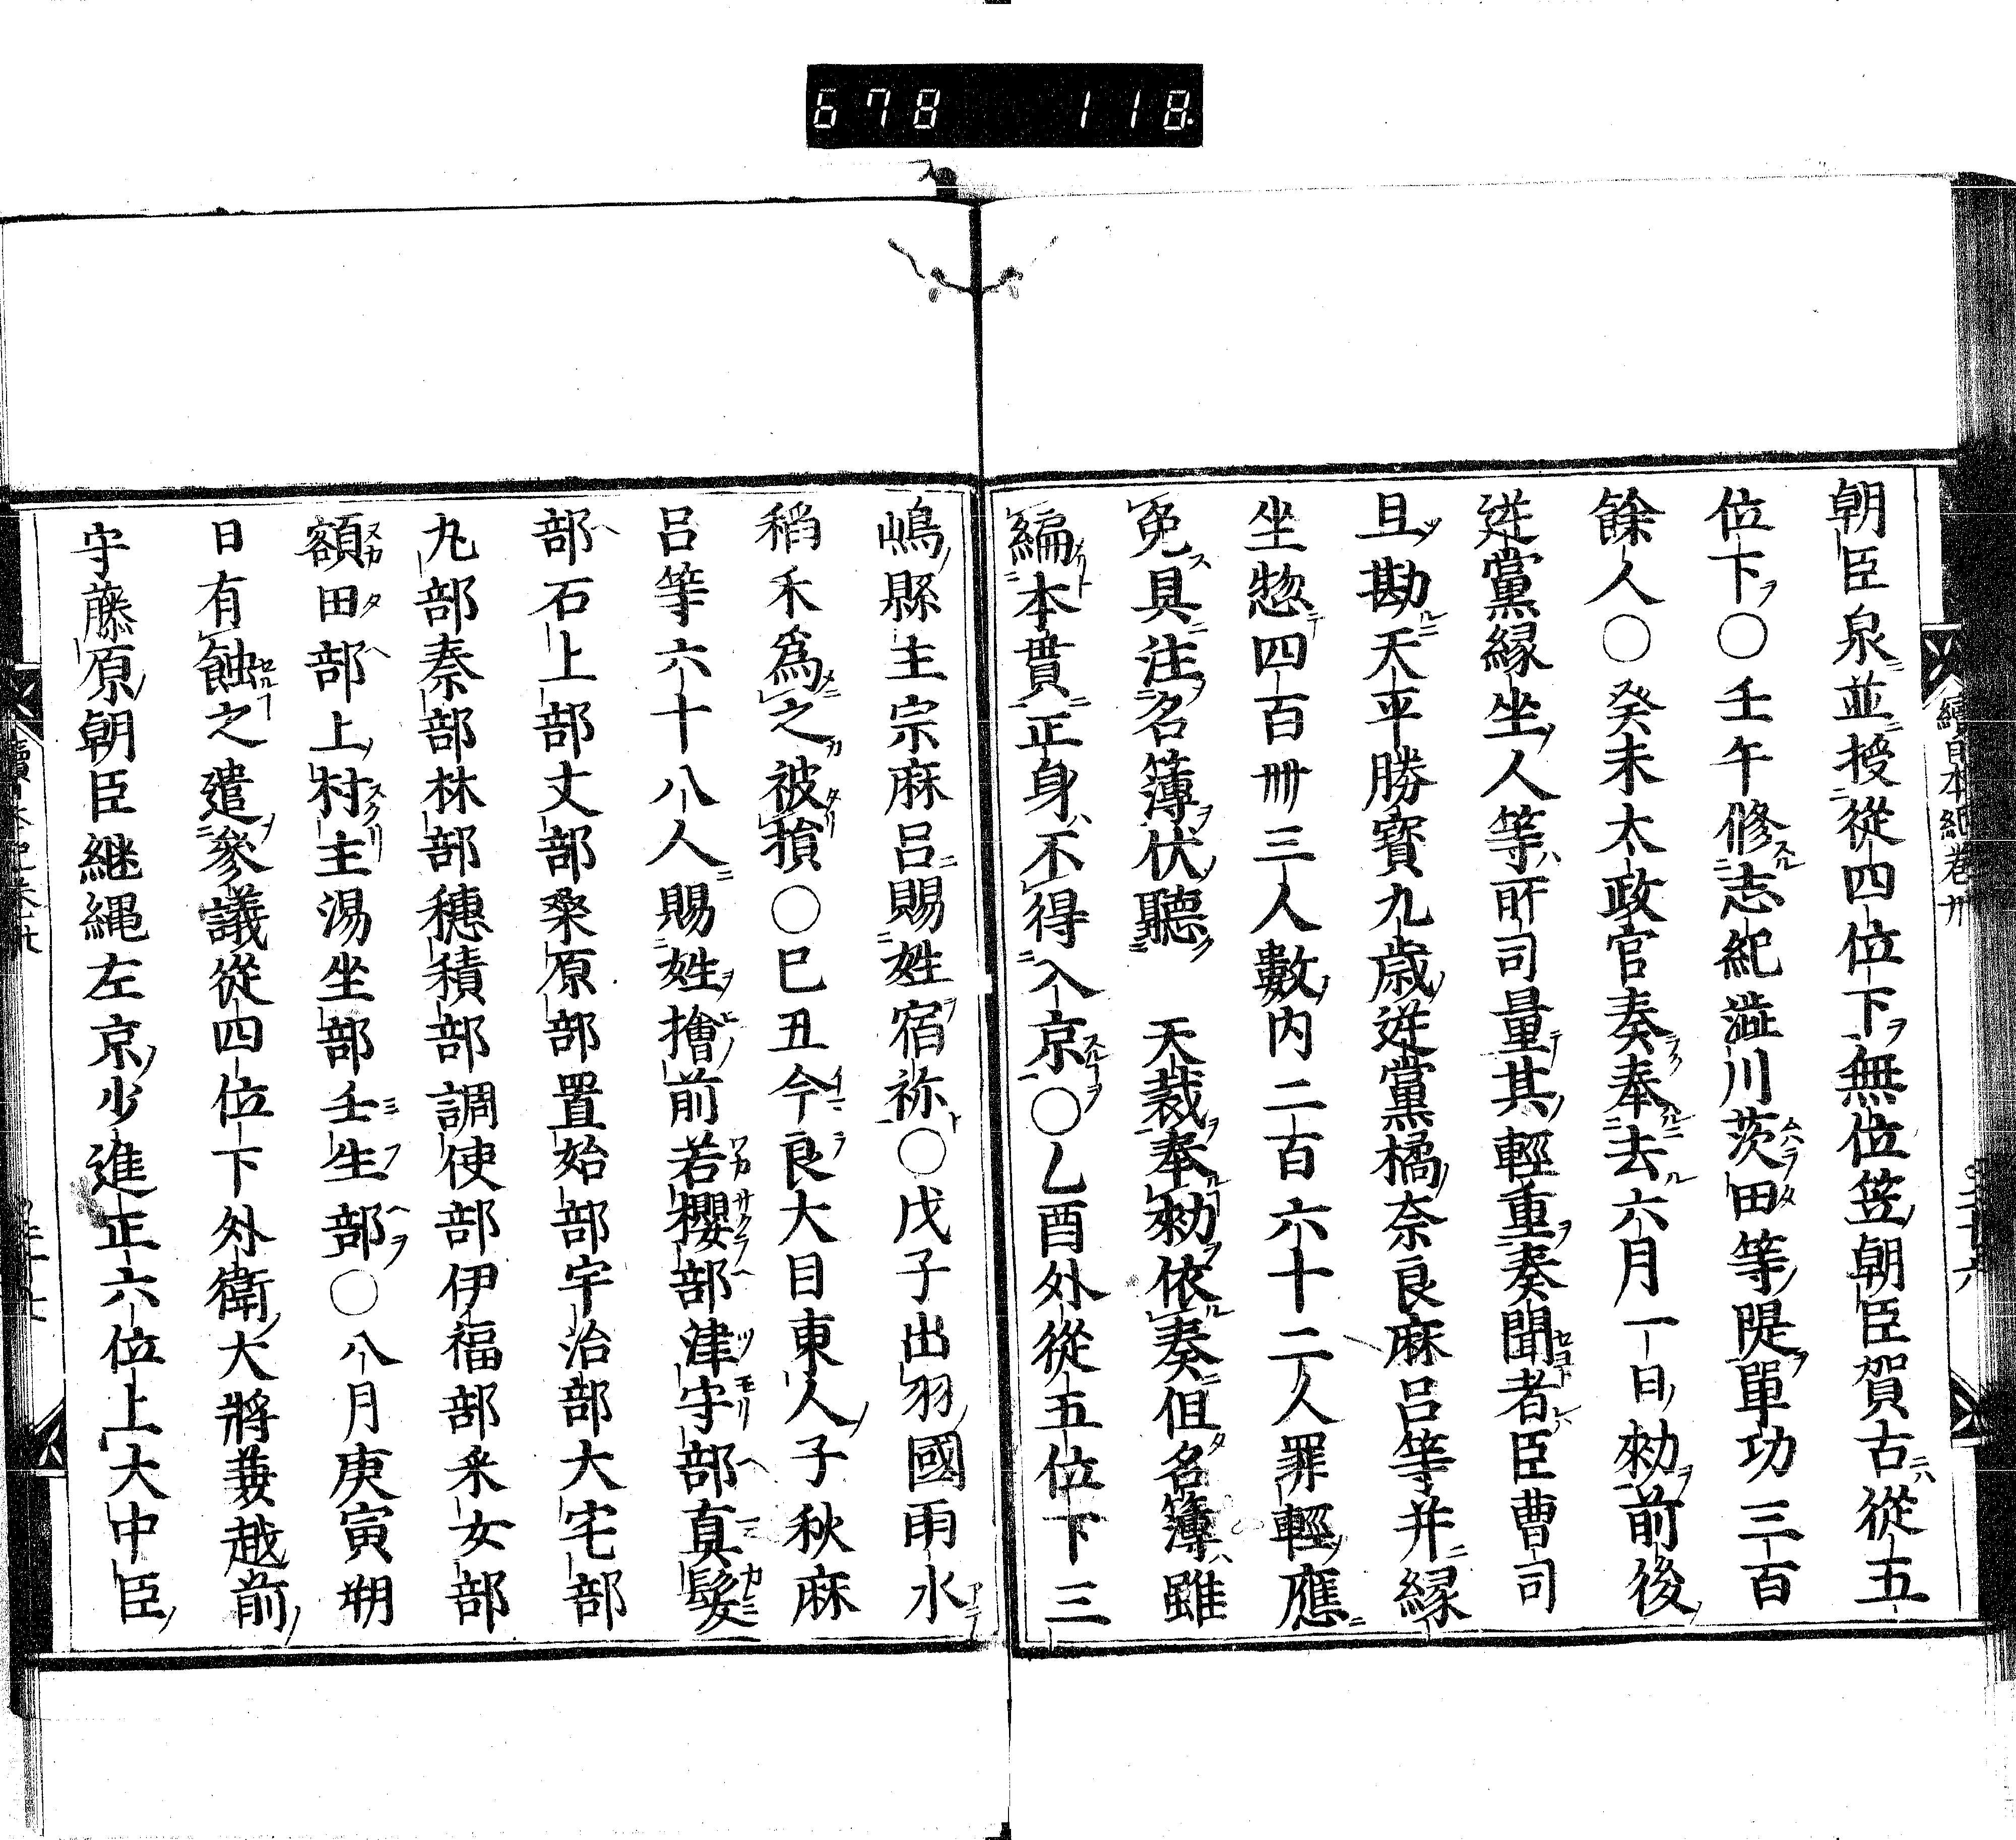 678 118
續日本紀卷卅
朝臣泉並授從四位下無位笠朝臣賀古從五
位下○壬午修志紀澁川茨田等隄單功三百
餘人○癸未太政官奏奉去六月一日勑前後
逆黨縁坐人等所司量其輕重奏聞者臣曹司
且勘天平勝寳九歳逆黨橘奈良麻呂等并縁
坐惣四百卌三人數内二百六十二人罪輕應
免具注名簿伏聽 天裁奉勑依奏但名簿雖
編本貫正身不得入京○乙酉外從五位下三
嶋縣主宗麻呂賜姓宿祢○戊子出羽國雨水
稻禾為之被損○巳丑今良大目東人子秋麻
呂等六十八人賜姓檜前若櫻部津守部真髮
部石上部丈部桑原部置始部宇治部大宅部
丸部秦部林部穗積部調使部伊福部采女部
額田部上村主湯坐部壬生部○八月庚寅朔
日有蝕之遣參議從四位下外衛大將兼越前
守藤原朝臣継繩左京少進正六位上大中臣